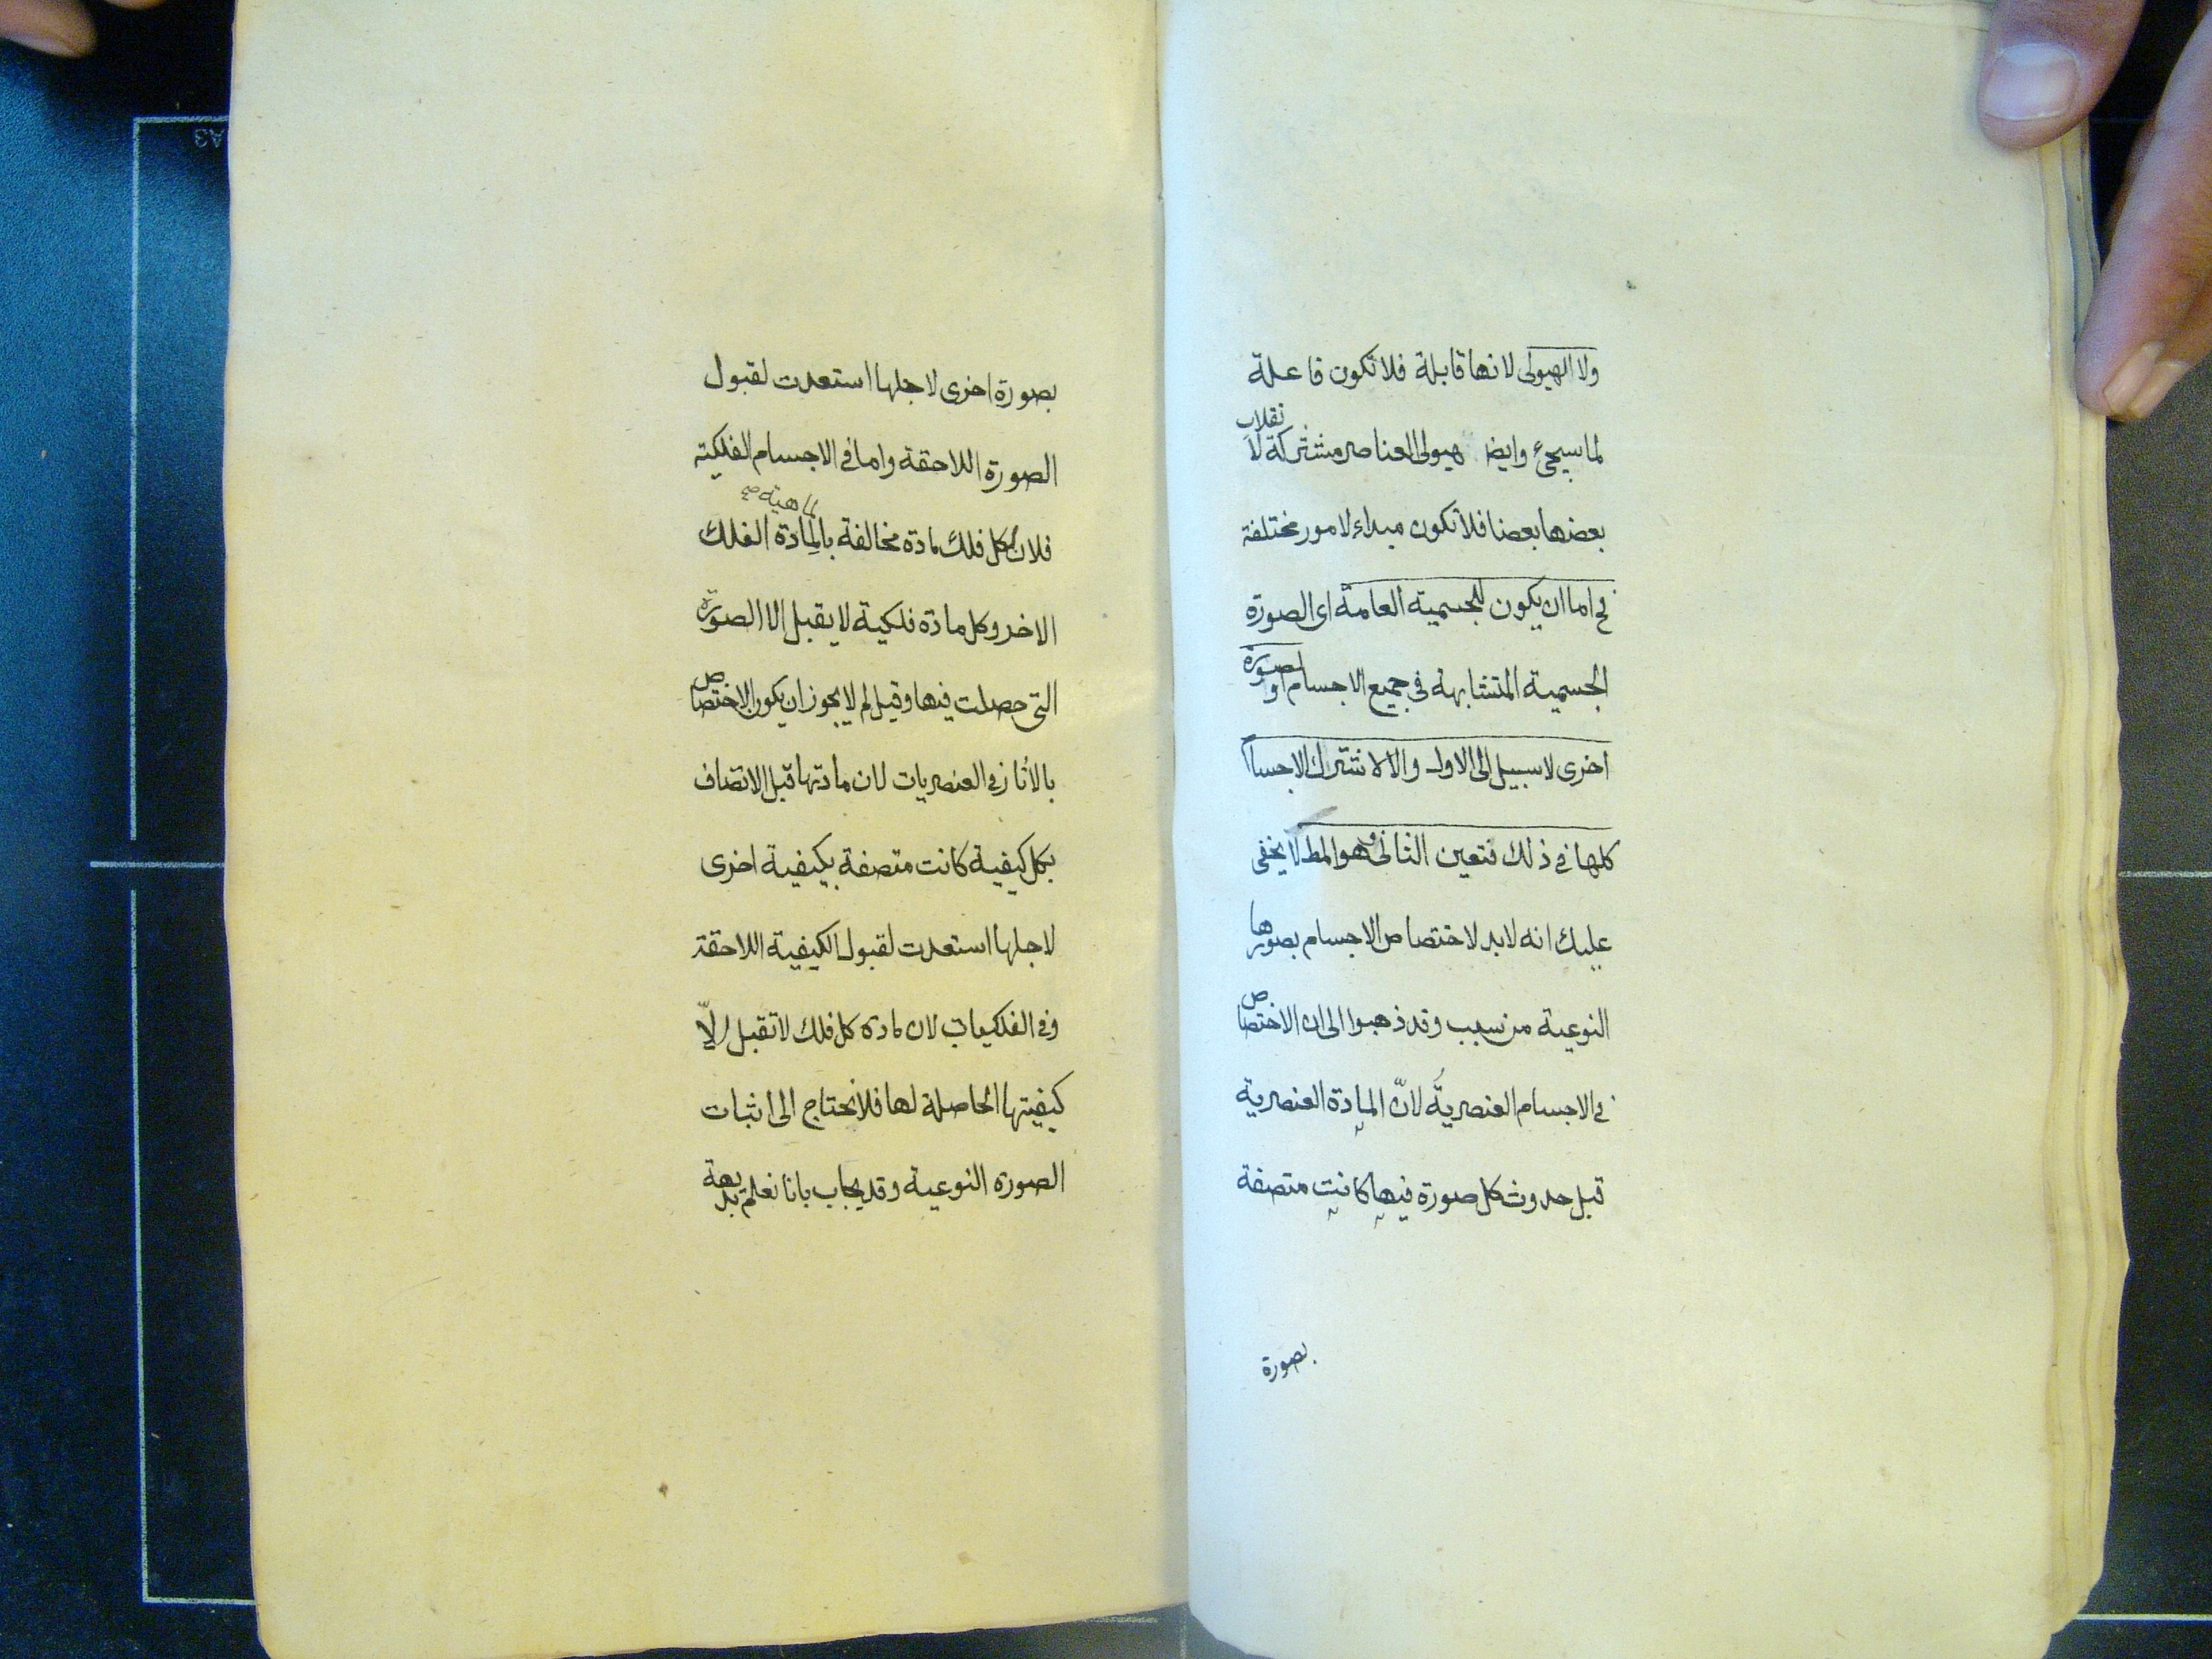 ولا الهيولى لانها قابلة فلا تكون فاعلة
لما سيجئ وايضا هيولى العناصر مشتركة لانقلاب
بعضها بعضا فلا تكون مبداء لامور مختلفة
فح اما ان يكون للجسمية العامة اى الصورة
الجسمية المتشابهة فى جميع الاجسام او لصورة
اخرى لا سبيل الى الاول والا لاشترك الاجسام
كلها فى ذلك فتعين الثانى وهو المط لا يخفى
عليك انه لابد لاختصاص الاجسام بصورها
النوعية من سبب وقد ذهبوا الى ان الاختصاص
فى الاجسام العنصرية لانّ المادة العنصرية
قبل حدوث كل صورة فيها كانت متصفة
بصورة
بصورة اخرى لاجلها استعدت لقبول
الصورة اللاحقة واما فى الاجسام الفلكية
فلان لكل فلك مادة مخالفة بالماهية صح لمادة الفلك
الاخر وكل مادة فلكية لا يقبل الا الصورة
التى حصلت فيها وقيل لم لا يجوز ان يكون الاختصاص
بالأثار فى العنصريات لان مادتها قبل الاتصاف
بكل كيفية كانت متصفة بكيفية اخرى
لاجلها استعدت لقبول الكيفية اللاحقة
وفى الفلكيات لان مادة كل فلك لا تقبل الاّ
كيفيتها الحاصلة لها فلا نحتاج الى اثبات
الصورة النوعية وقد يجاب بانا نعلم بديهة